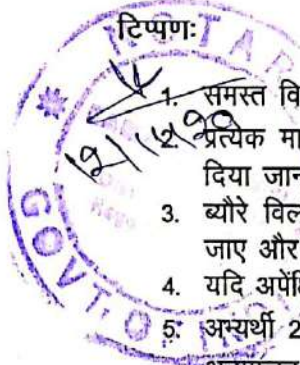 टिप्पणः
1. समस्त वि
2. प्रत्येक मा
दिया जान
3. ब्यौरे विल
जाए और
4. यदि अपेक्षि
5. अभ्यर्थी 2
NOTAR
GOVT. OF